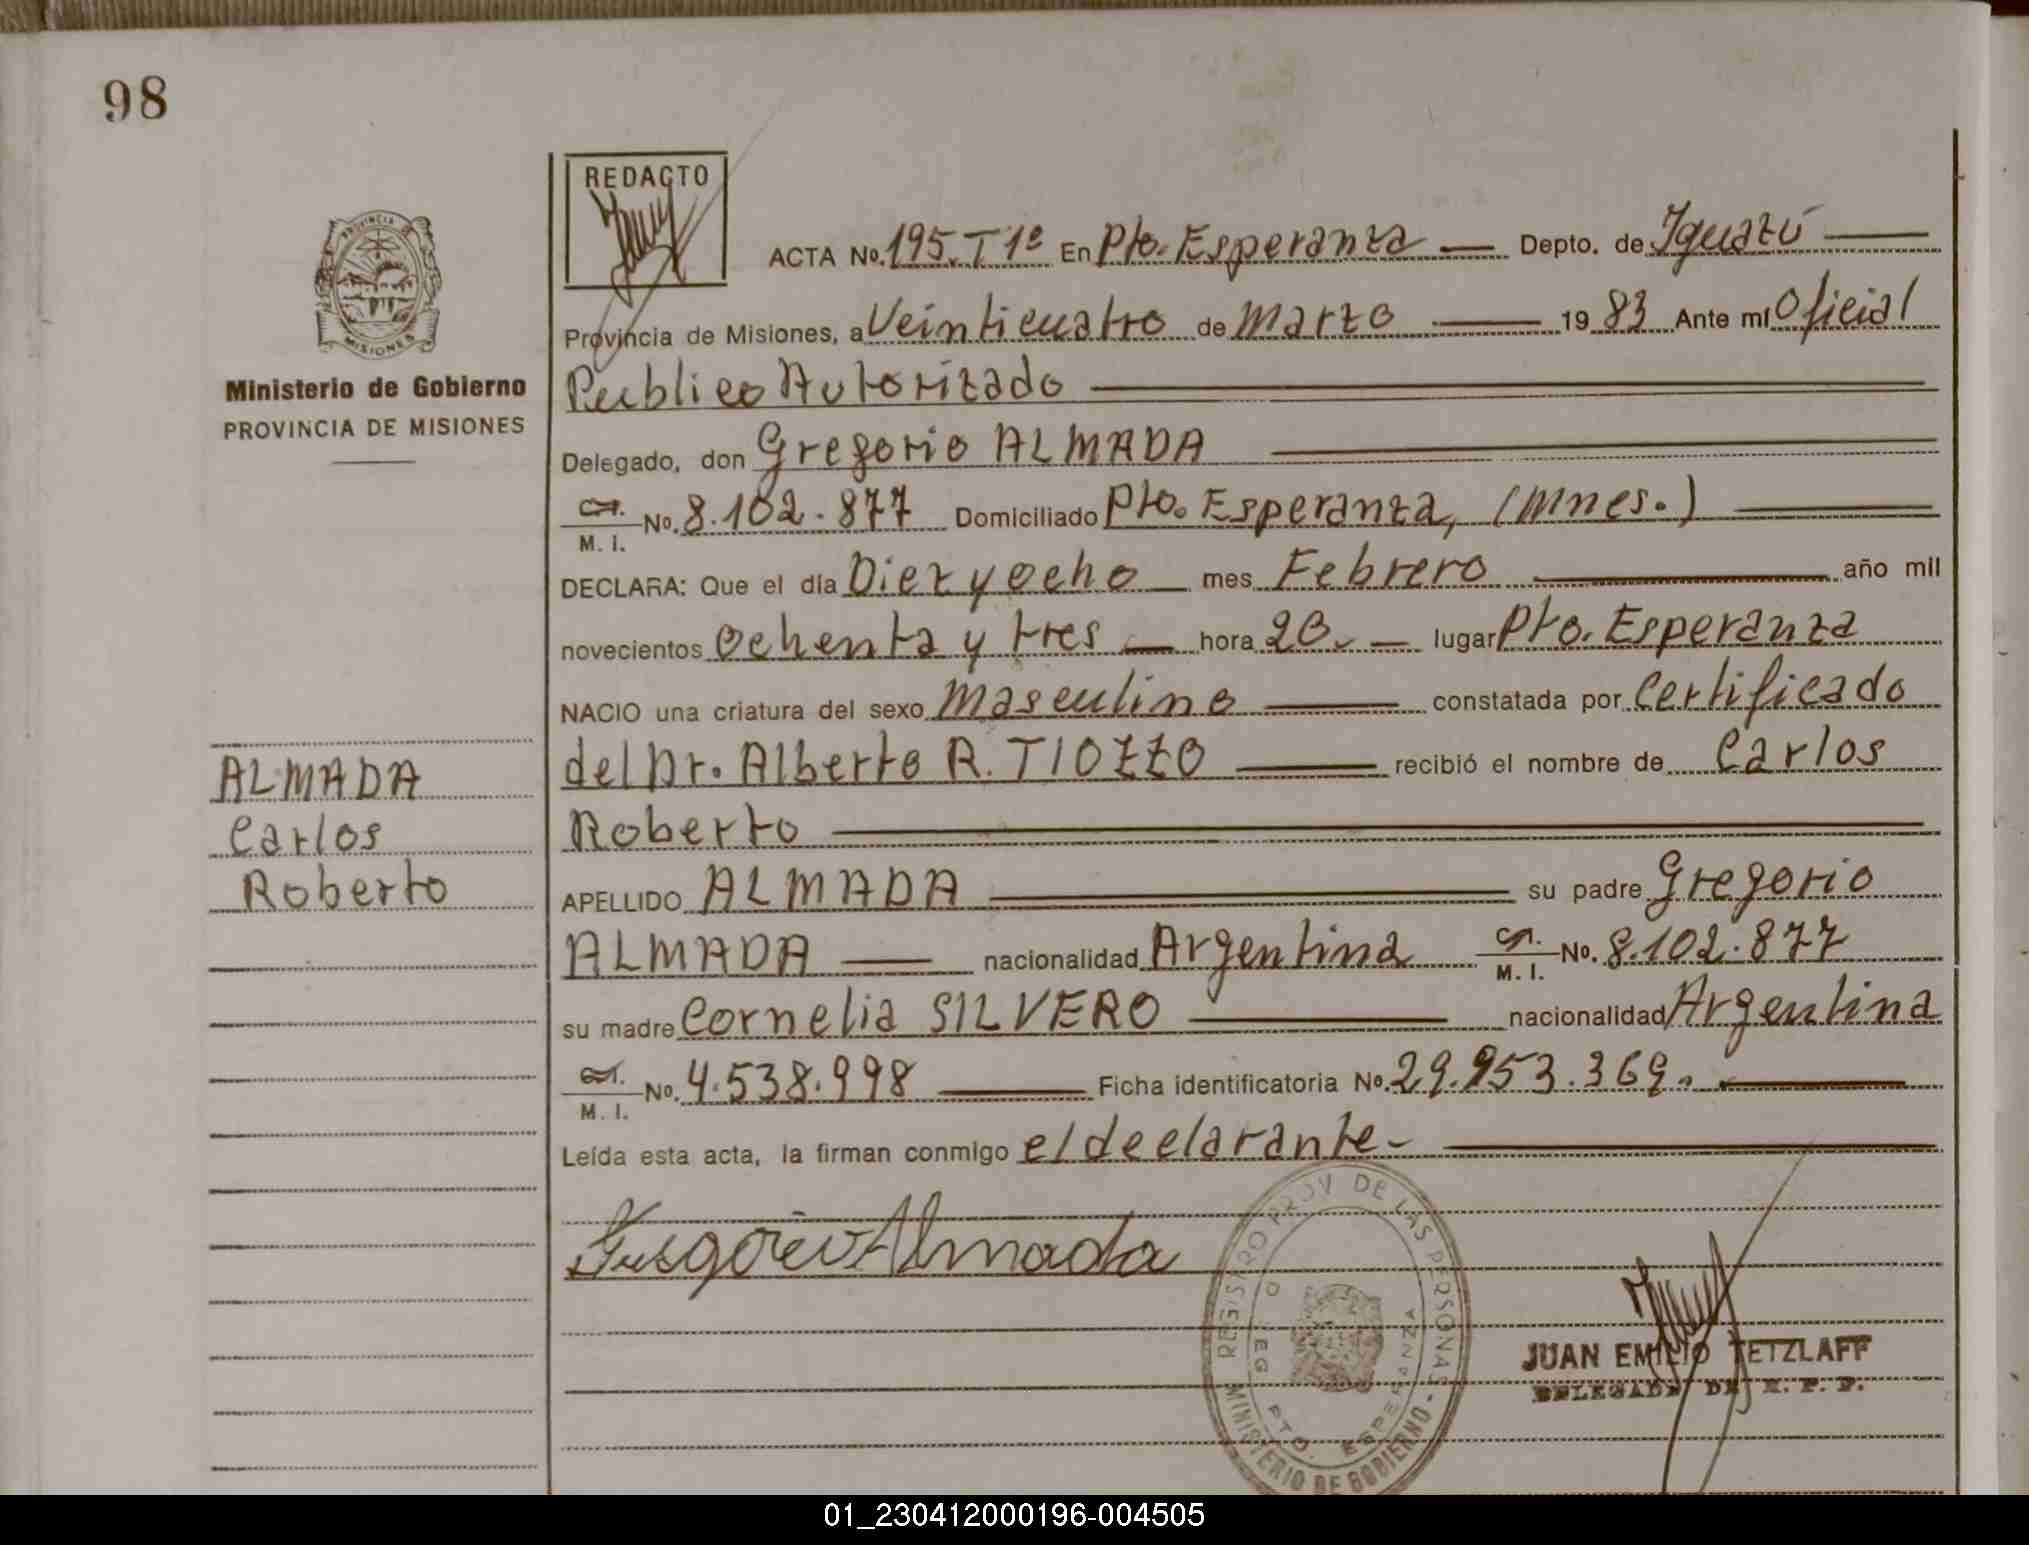 98
REDACTO
PROVINCIA DE
MISIONES
Ministerio de Gobierno
PROVINCIA DE MISIONES
ACTA No. 195. T 1º En Pto. Esperanza Depto. de Iguazú
Provincia de Misiones, a Veinticuatro de Marzo 1983 Ante mí Oficial
Publico Autorizado
Delegado, don Gregorio ALMADA
C.I. M. I. No. 8.102.877 Domiciliado Pto. Esperanza, (Mnes.)
DECLARA: Que el día Diez y ocho mes Febrero año mil
novecientos ochenta y tres hora 20. lugar Pto. Esperanza
NACIO una criatura del sexo Masculino constatada por Certificado
del Dr. Alberto R. TIOZZO recibió el nombre de Carlos
Roberto
APELLIDO ALMADA su padre Gregorio
ALMADA nacionalidad Argentina C.I. M. I. No. 8.102.877
su madre Cornelia SILVERO nacionalidad Argentina
C.I. M. I. No. 4.538.998 Ficha identificatoria No. 29.953.369.
Leída esta acta, la firman conmigo el declarante-
ALMADA
Carlos
Roberto
Gregorio Almada
REGISTRO PROV DE LAS PERSONAS - MINISTERIO DE GOBIERNO -
PTO ESPERANZA
JUAN EMILIO TETZLAFF
DELEGADO DE R. P. P.
01_230412000196-004505